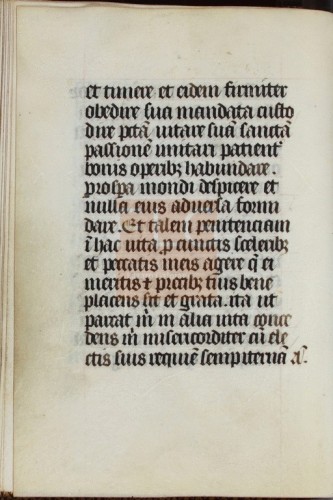 et timere et eidem firmiter
obedire sua mandata custo
dire pctā vitare suā sanctā
passionē imitari patient᷑
bonis operibꝫ habundare.
prospa mondi despicere et
nulla eius aduersa formi
dare. Et talem penitenciam
ī hac uita ꝓ cunctis sceleribꝫ
et peccatis meis agere q̄ ei
meritis ⁊ precibꝫ tuis bene
placens sit et grata. ita ut
parcat m̄ in alia uita conce
dens m̄ misericorditer cū ele
ctis suis requiē sempiternā a᷑.